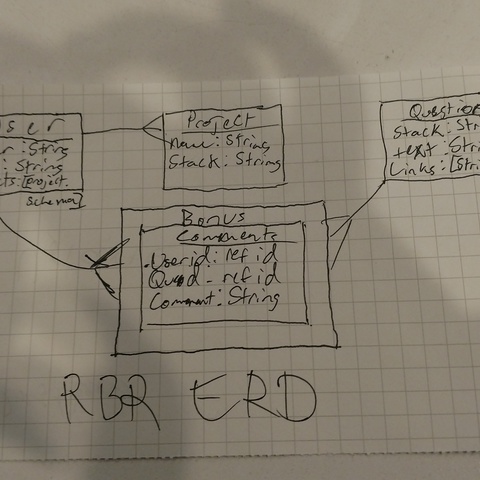 ser
r: String
: String
cts: [project.
schema]
Project
Name: String
Stack: String
Question
Stack: Str
text: Stri
Links: [Strin
Bonus
Comments
Userid: ref id
ref id
Comment: String
RBR ERD